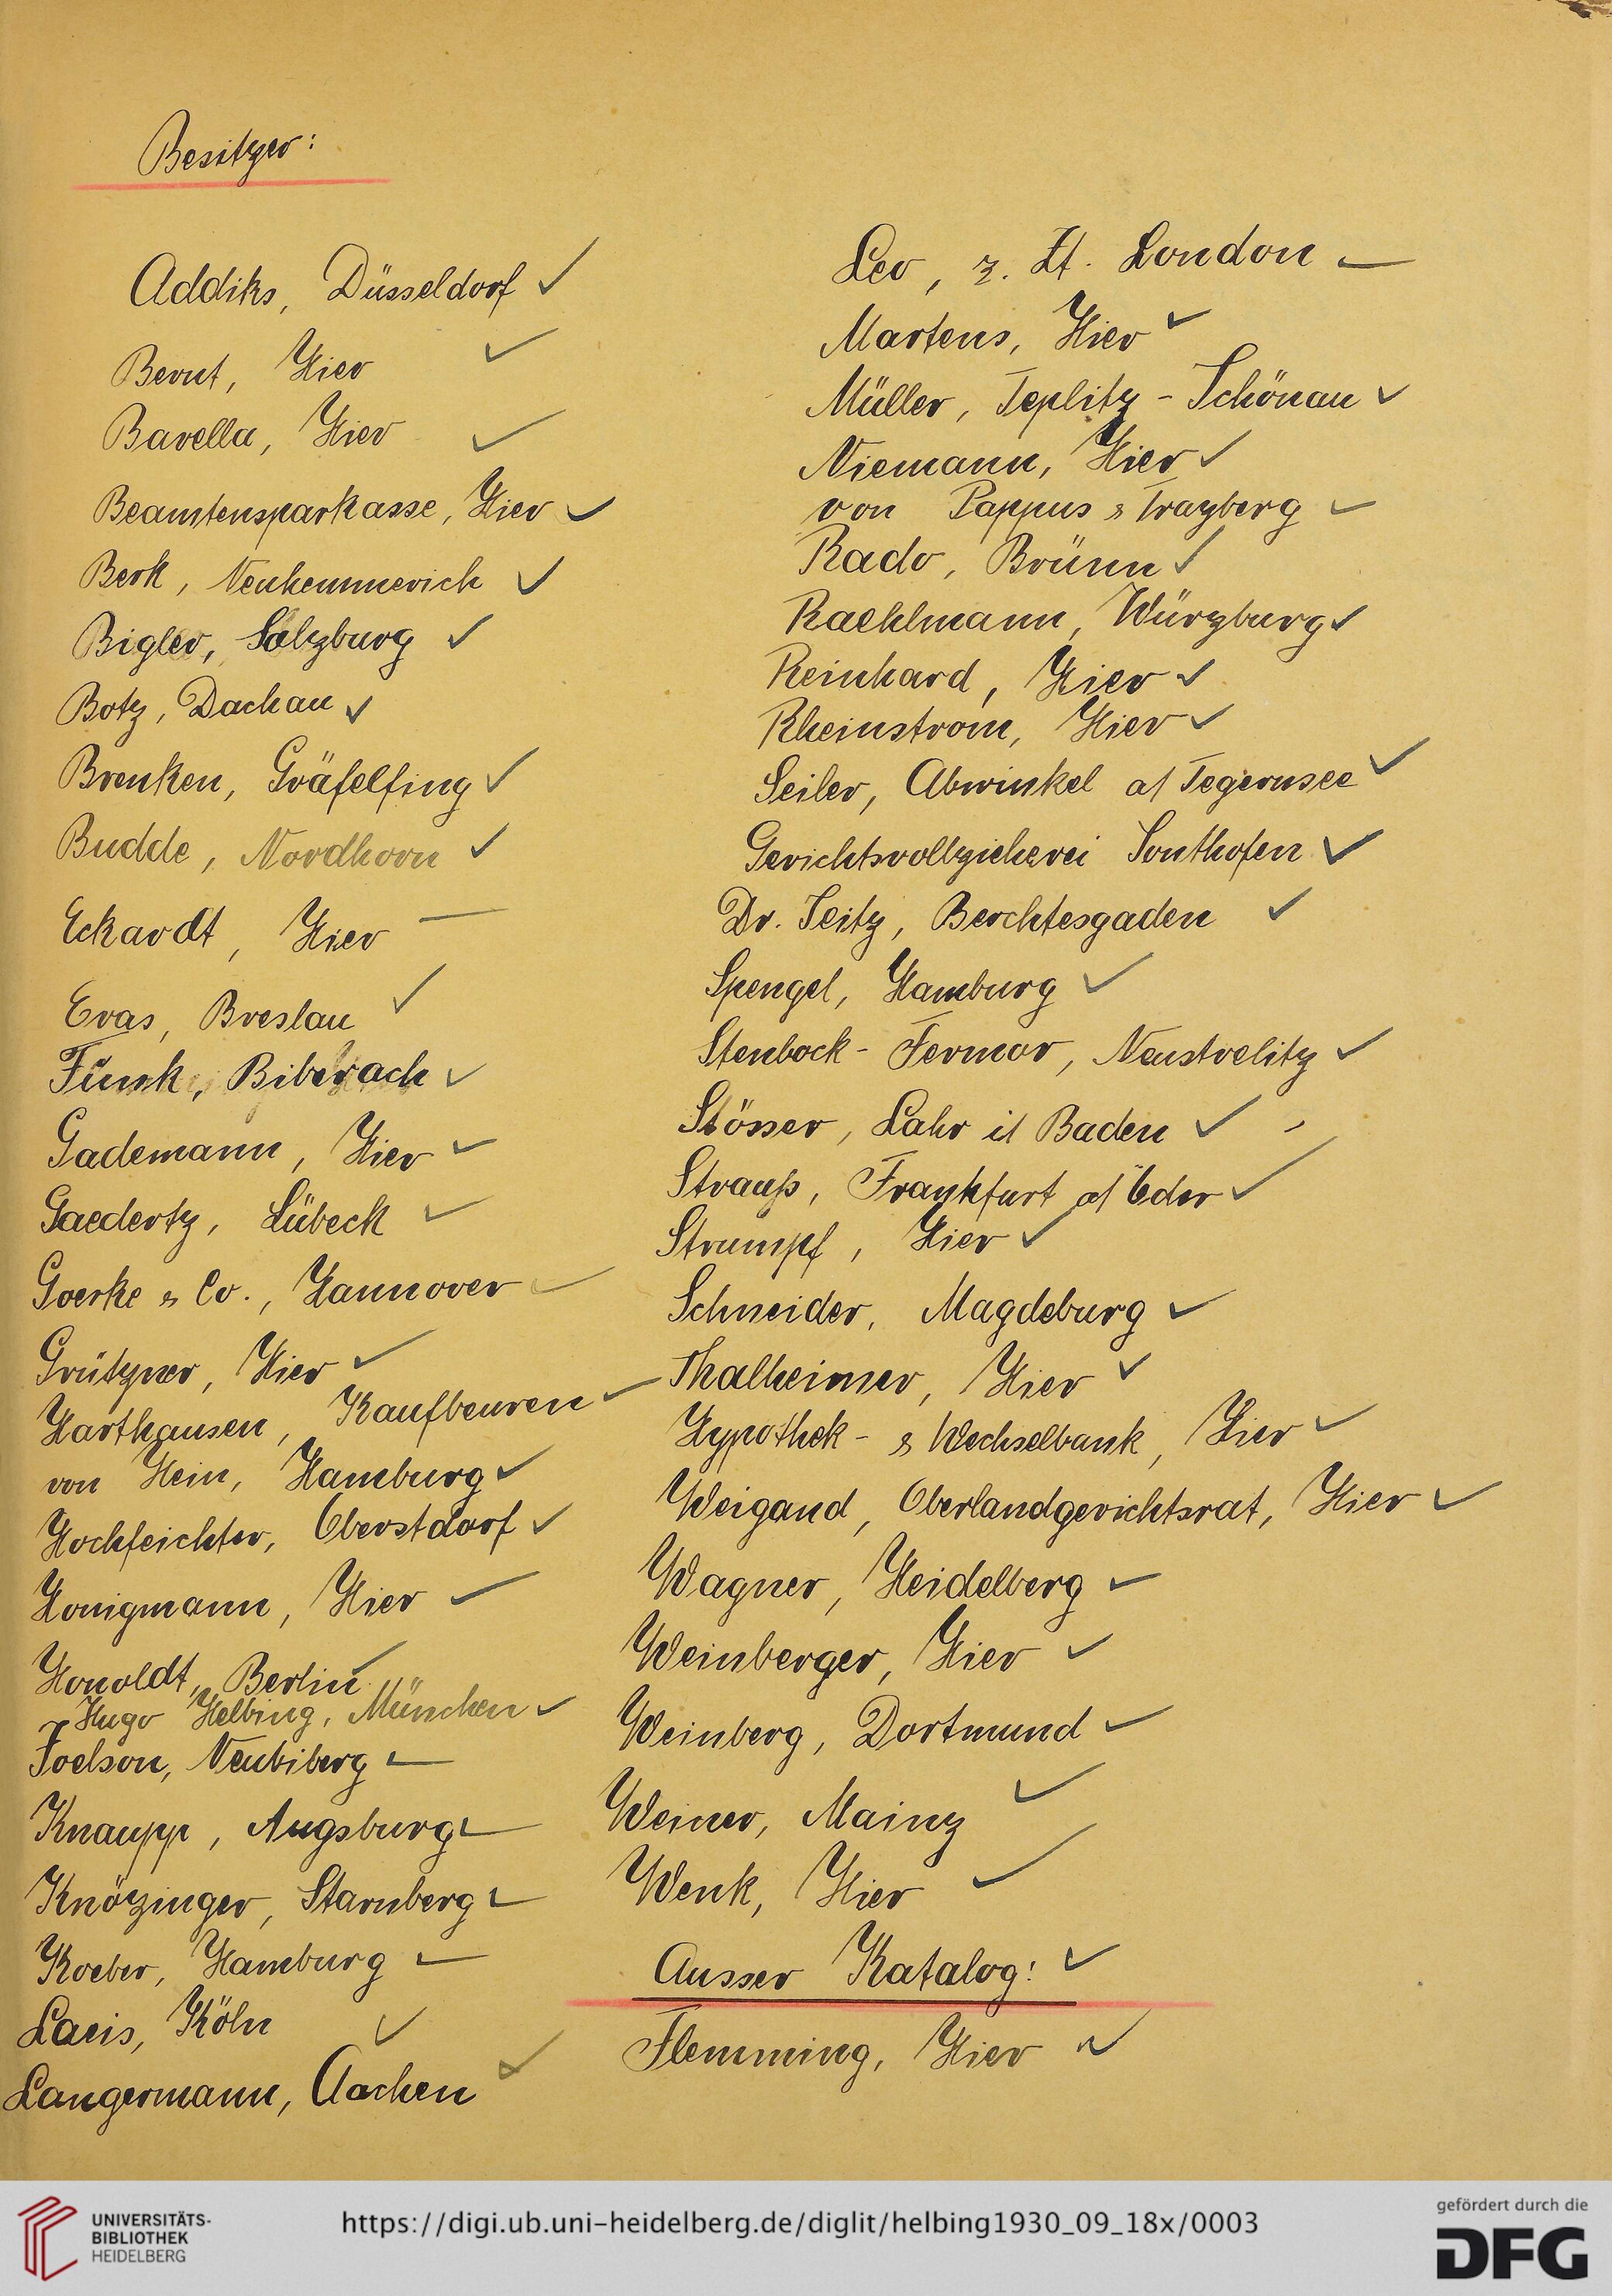 Besitzer:
Addiks, Düsseldorf ✓
Bernt, Hier ✓
Bavella, Hier ✓
Beamtensparkasse, Hier ✓
Berk, Neukemmerich ✓
Bigler, Salzburg ✓
Botz, Dachau ✓
Brenken, Gräfelfing ✓
Budde, Nordhorn ✓
Eckardt, Hier —
Evas, Breslau ✓
Funk, Biberach ✓
Gademann, Hier ✓
Gaedertz, Lübeck ✓
Goerke & Co., Hannover ✓
Grützner, Hier ✓
Harthausen, Kaufbeuren ✓
von Hein, Hamburg ✓
Hochfeichter, Oberstdorf ✓
Honigmann, Hier ✓
Honoldt, Berlin ✓
Hugo Helbing, München ✓
Joelson, Neubiberg ✓
Knaupp, Augsburg ✓
Knözinger, Starnberg ✓
Koeber, Hamburg ✓
Laris, Köln ✓
Langermann, Aachen ✓
Leo, z. Zt. London —
Martens, Hier ✓
Müller, Teplitz - Schönau ✓
Niemann, Hier ✓
von Pappus & Trazberg ✓
Rado, Brünn ✓
Raehlmann, Würzburg ✓
Reinhard, Hier ✓
Rheinstrom, Hier ✓
Seiler, Abwinkel a/ Tegernsee ✓
Gerichtsvollzieherei Sonthofen ✓
Dr. Seitz, Berchtesgaden ✓
Spengel, Hamburg ✓
Stenbock - Fermor, Neustrelitz ✓
Stösser, Lahr i/ Baden ✓
Strauß, Frankfurt a/ Oder ✓
Strumpf, Hier ✓
Schneider, Magdeburg ✓
Thalheimer, Hier ✓
Hypothek - & Wechselbank, Hier ✓
Weigand, Oberlandgerichtsrat, Hier ✓
Wagner, Heidelberg ✓
Weinberger, Hier ✓
Weinberg, Dortmund ✓
Weiner, Mainz ✓
Wenk, Hier ✓
Ausser Katalog: ✓
Flemming, Hier ✓
UNIVERSITÄTS-
BIBLIOTHEK
HEIDELBERG
https://digi.ub.uni-heidelberg.de/diglit/helbing1930_09_18x/0003
gefördert durch die
DFG